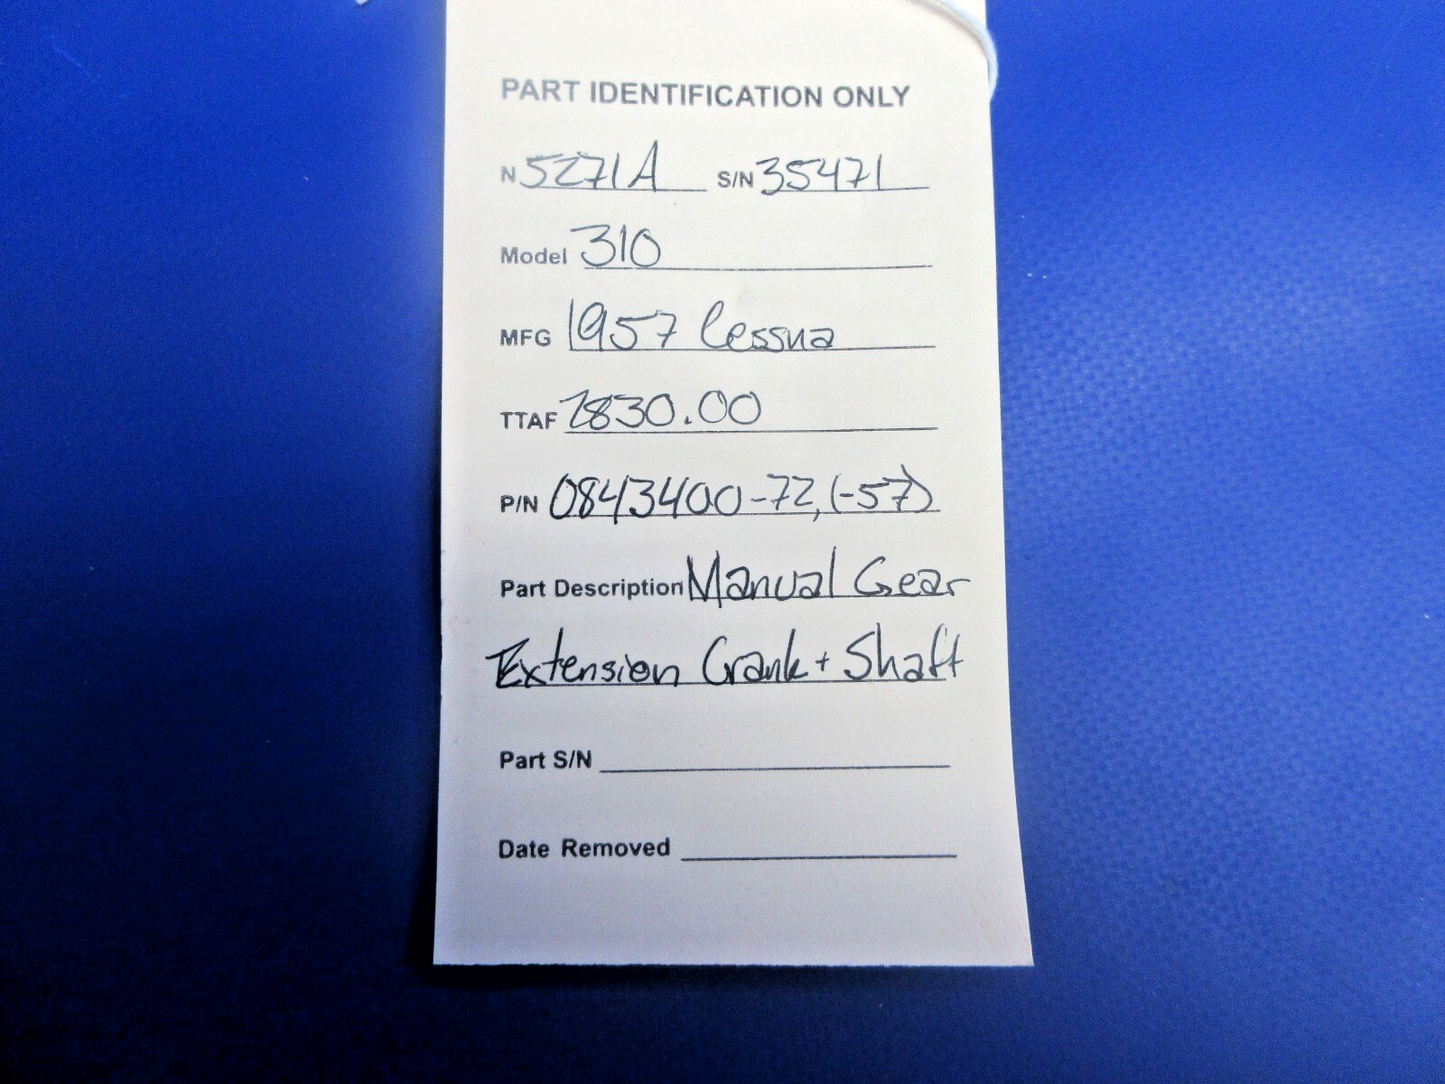 PART IDENTIFICATION ONLY
N 5271A S/N 35471
Model 310
MFG 1957 Cessna
TTAF 2830.00
P/N 0843400-72, (-57)
Part Description Manual Gear
Extension Crank + Shaft
Part S/N
Date Removed